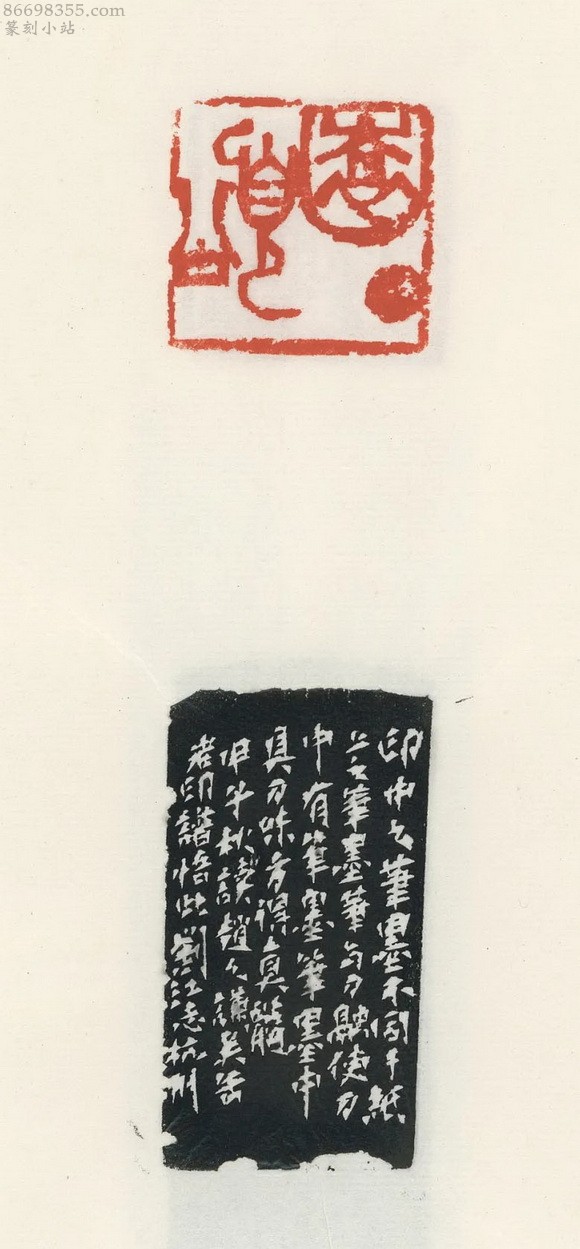 86698355.com
篆刻小站
印中之筆墨不同于紙
上之筆墨筆与刀融使刀
中有筆墨筆墨中
具刀味方得真髓
秋讀趙之謙吳缶
老印譜悟此劉江志杭州